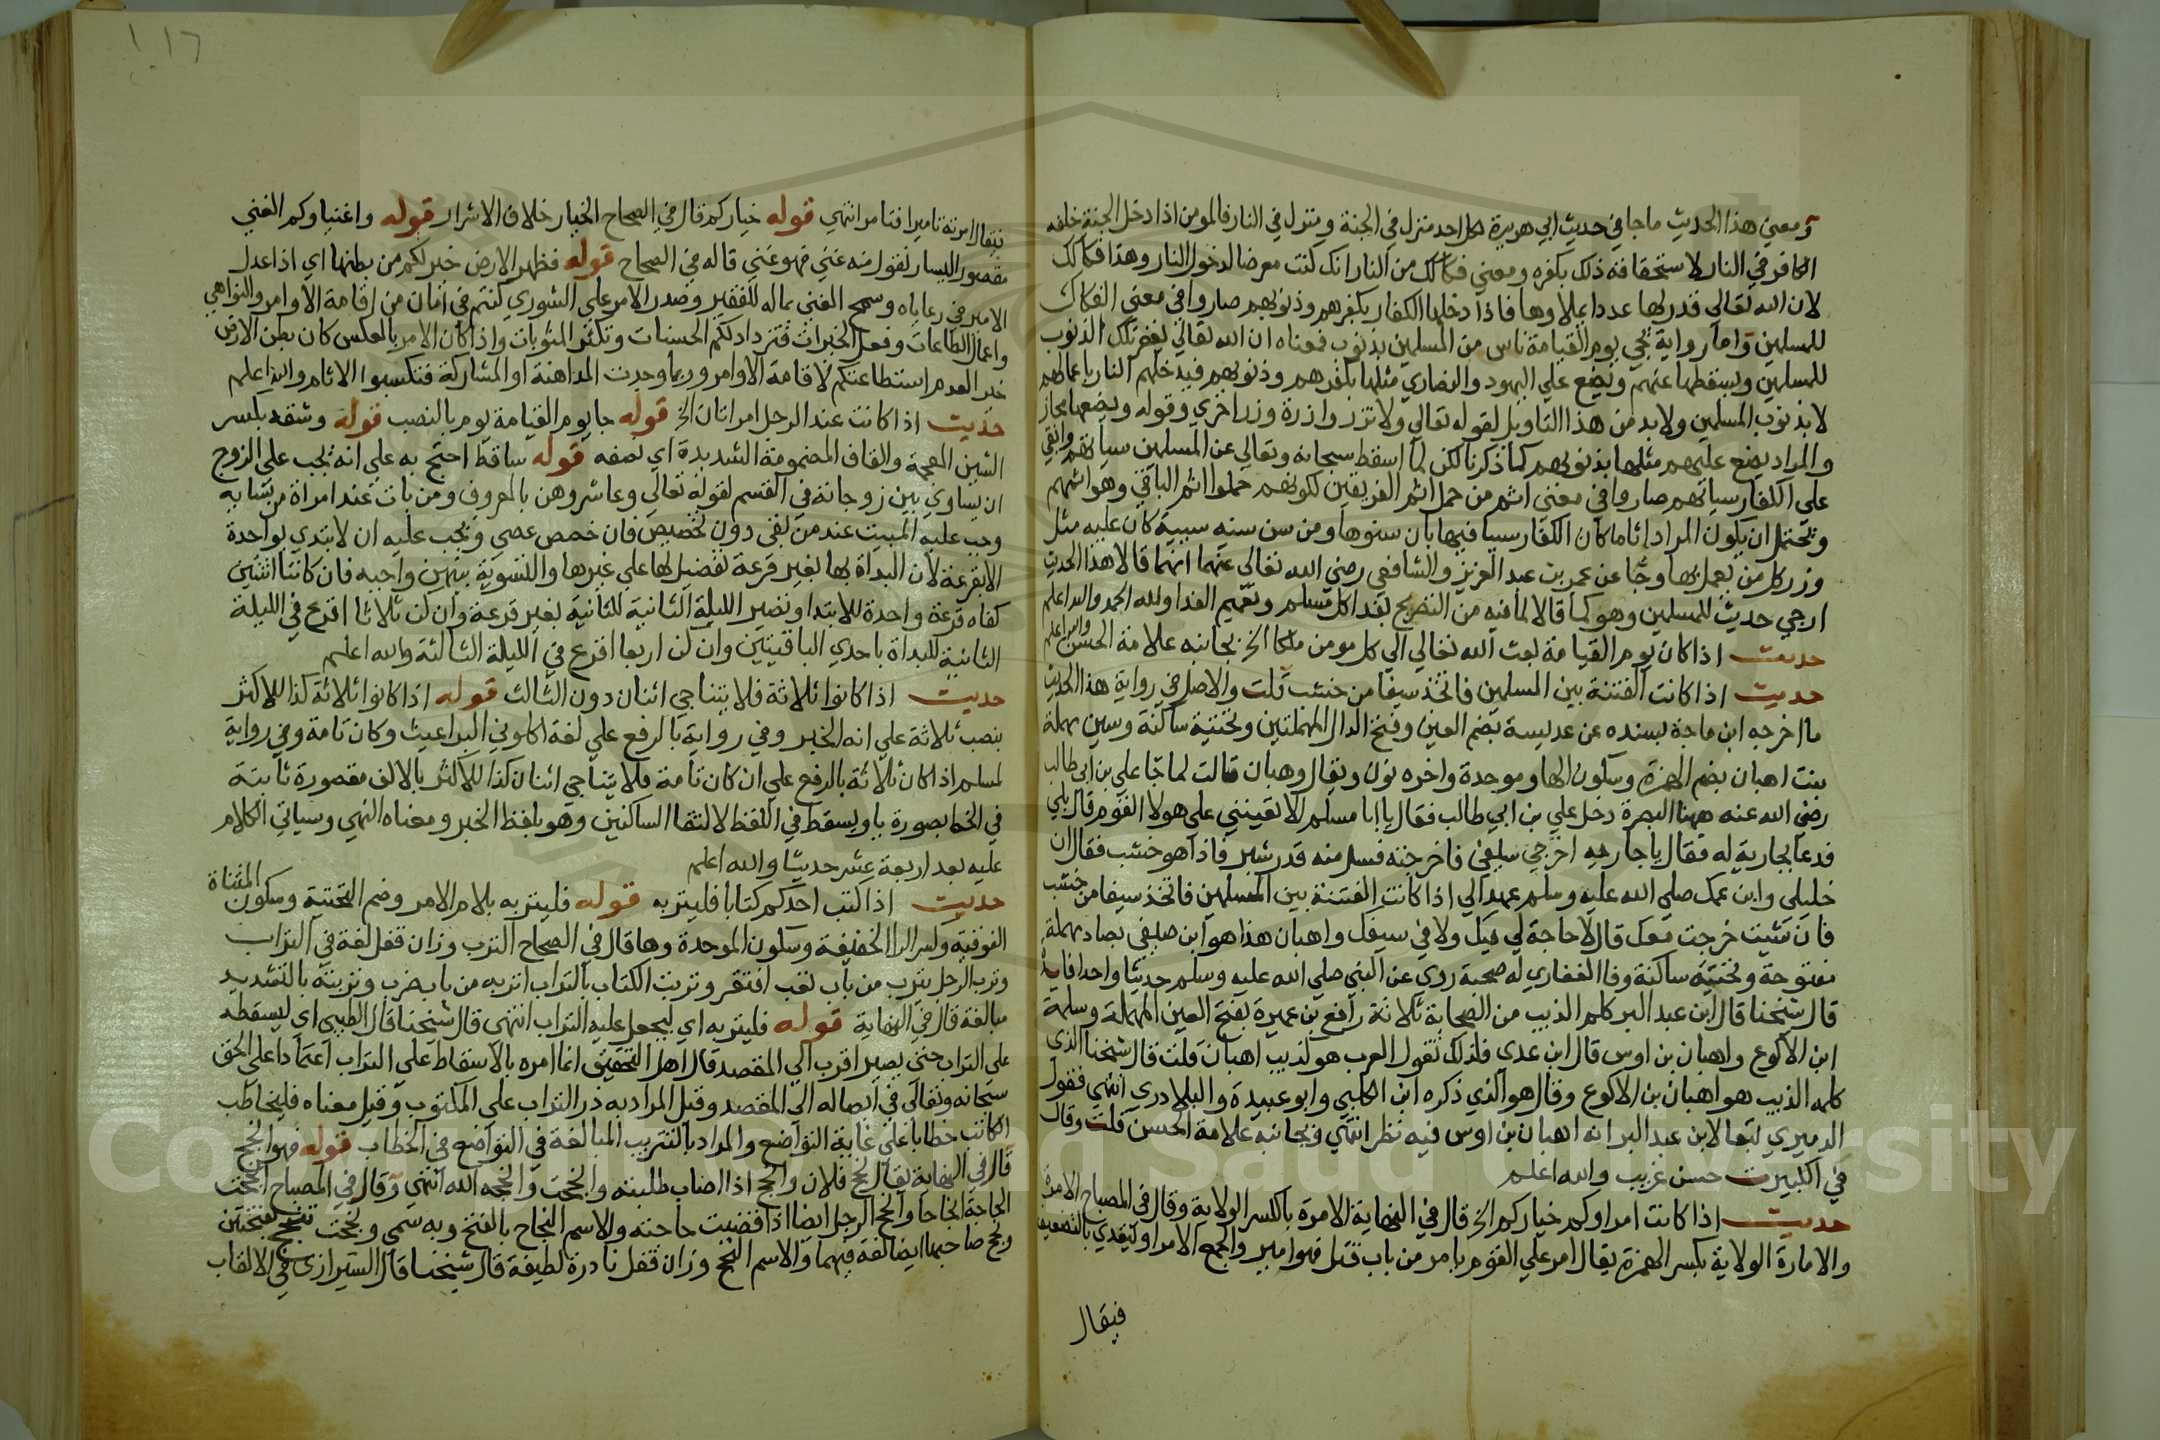 ومعني هذا الحديث ماجا في حديث ابي هريرة لكل احد منزل في الجنة ومنزل في النار فالمومن اذا دخل الجنة خلفه
الكافر في النار لاستحقاقه ذلك بكفره ومعني فكاكك من النار انك كنت معرضا لدخول النار وهذا فكاكك
لان الله تعالي قدر لها عددا يملاوها فاذا دخلها الكفار بكفرهم وذنوبهم صاروا في معني الفكاك
للمسلمين واما رواية يجي يوم القيامة ناس من المسلمين بذنوب فمعناه ان الله تعالي يغفر تلك الذنوب
للمسلمين ويسقطها عنهم ويضع علي اليهود والنصاري مثلها بكفرهم وذنوبهم فيدخلهم النار باعمالهم
لا بذنوب المسلمين ولا بد من هذا التاويل لقوله تعالي ولا تزر وازرة وزر اخري وقوله ويضعها مجاز
والمراد يضع عليهم مثلها بذنوبهم كما ذكرنا لكن لما اسقط سبحانه وتعالي عن المسلمين سياتهم وابقي
علي الكفار سياتهم صاروا في معني من حمل اثم الفريقين لكونهم حملوا الاثم الباقي وهو اثمهم
ويحتمل ان يكون المراد اثاما كان الكفار سببا فيها بان سنوها ومن سن سنه سيية كان عليه مثل
وزر كل من يعمل بها وجا عن عمر بن عبد العزيز والشافعي رضي الله تعالي عنهما انهما قالا هذا الحديث
ارجي حديث للمسلمين وهو كما قالا لما فيه من التصريح بفدا كل مسلم وتعميم الفدا ولله الحمد والله اعلم
حديث اذا كان يوم القيامة بعث الله تعالي الي كل مومن ملكا الخ بجانبه علامة الحسن والله اعلم
حديث اذا كانت الفتنة بين المسلمين فاتخذ سيفا من خشب قلت والاصل في رواية هذا الحديث
ما اخرجه ابن ماجة بسنده عن عديسة بضم العين وفتح الدال المهملتين وتحتية ساكنة وسين مهملة
بنت اهبان بضم الهمزة وسكون الها وموحدة واخره نون ويقال وهبان قالت لما جا علي بن ابي طالب
رضي الله عنه ههنا البصرة دخل علي بن ابي طالب فقال يا ابا مسلم الا تعينني علي هولا القوم قال بلي
فدعا بجارية له فقال يا جاريه اخرجي سيفي فاخرجته فسل منه قدر شبر فاذا هو خشب فقال ان
خليلي وابن عمك صلي الله عليه وسلم عهد الي اذا كانت الفتنة بين المسلمين فاتخذ سيفا من خشب
فان شئت خرجت معك قال لا حاجة لي فيك ولا في سيفك واهبان هذا هو ابن صيفي بصاد مهملة
مفتوحة وتحتية ساكنة وفا الغفاري له صحبة روي عن النبي صلي الله عليه وسلم حديثا واحدا فايدة
قال شيخنا قال ابن عبد البر كلم الذيب من الصحابة ثلاثة رافع بن عميرة بفتح العين المهملة وسلمة
ابن الاكوع واهبان بن اوس قال ابن عدي فلذلك تقول العرب هو لذيب اهبان قلت قال شيخنا الذي
كلمه الذيب هو اهبان بن الاكوع وقال هو الذي ذكره ابن الكلبي وابو عبيدة والبلادري انتهي فقول
الدميري تبعا لابن عبد البر انه اهبان بن اوس فيه نظر انتهي وبجانبه علامة الحسن قلت وقال
في الكبير ت حسن غريب والله اعلم
حديث اذا كانت امراوكم خياركم الخ قال في النهاية الامرة بالكسر الولاية وقال في المصباح الامرة
والامارة الولاية بكسر الهمزة يقال امر علي القوم يامر من باب قتل فهو امير والجمع الامرا ويتعدي بالتضعيف
فيقال
١١٦
فيقال امرته تاميرا فتامر انتهي قوله خياركم قال في الصحاح الخيار خلاف الاشرار قوله واغنياوكم الغني
مقصور اليسار تقول منه غني فهو غني قاله في الصحاح قوله فظهر الارض خير لكم من بطنها اي اذا عدل
الامير في رعاياه وسمح الغني بماله للفقير وصدر الامر علي الشوري كنتم في امان من اقامة الاوامر والنواهي
واعمال الطاعات وفعل الخيرات فتزداد لكم الحسنات وتكثر المثوبات واذا كان الامر بالعكس كان بطن الارض
خير لعدم استطاعتكم لاقامة الاوامر وربما وجدت المداهنة او المشاركة فتكسبوا الاثام والله اعلم
حديث اذا كانت عند الرجل امراتان الخ قوله جا يوم القيامة يوم بالنصب قوله وشقه بكسر
الشين المعجمة والقاف المضمومة الشديدة اي نصفه قوله ساقط احتج به علي انه يجب علي الزوج
ان يساوي بين زوجاته في القسم لقوله تعالي وعاشروهن بالمعروف ومن بات عند امراة من نسايه
وجب عليه المبيت عند من بقي دون تخصيص فان خصص عصي ويجب عليه ان لا يبتدي بواحدة
الا بقرعة لان البداة بها بغير قرعة تفضيل لها علي غيرها والتسوية بينهن واجبه فان كانتا اثنتين
كفاه قرعة واحدة للابتدا وتصير الليلة الثانية للثانية بغير قرعة وان كن ثلاثا اقرع في الليلة
الثانية للبداة باحدي الباقيتين وان كن اربعا اقرع في الليلة الثالثة والله اعلم
حديث اذا كانوا ثلاثة فلا يتناجي اثنان دون الثالث قوله اذا كانوا ثلاثة كذا للاكثر
بنصب ثلاثة علي انه الخبر وفي رواية بالرفع علي لغة اكلوني البراغيث وكان تامة وفي رواية
لمسلم اذا كان ثلاثة بالرفع علي ان كان تامة فلا يتناجي اثنان كذا للاكثر بالالف مقصورة ثابتة
في الخط بصورة يا ويسقط في اللفظ لالتقا الساكنين وهو بلفظ الخبر ومعناه النهي وسياتي الكلام
عليه بعد اربعة عشر حديثا والله اعلم
حديث اذا كتب احدكم كتابا فليتربه قوله فليتربه بلام الامر وضم التحتية وسكون المثناة
الفوقية وكسر الرا الخفيفة وسكون الموحدة وها قال في الصحاح الترب وزان قفل لغة في التراب
وترب الرجل يترب من باب تعب افتقر وتربت الكتاب بالتراب اتربه من باب ضرب وتربته بالتشديد
مبالغة قال في النهاية قوله فليتربه اي ليجعل عليه التراب انتهي قال شيخنا قال الطيبي اي ليسقطه
علي التراب حتي يصير اقرب الي المقصد قال اهل التحقيق انما امره بالاسقاط علي التراب اعتمادا علي الحق
سبحانه وتعالي في ايصاله الي المقصد وقيل المراد به ذر التراب علي المكتوب وقيل معناه فليخاطب
الكاتب خطابا علي غاية التواضع والمراد بالتتريب المبالغة في التواضع في الخطاب قوله فهو انجح
قال في النهاية يقال نجح فلان وانجح اذا اصاب طلبته وانجحت وانجحه الله انتهي وقال في المصباح انجحت
الحاجة انجاحا وانجح الرجل ايضا اذا قضيت حاجته والاسم النجاح بالفتح وبه سمي ونجحت تنجح بفتحتين
ونجح صاحبها ايضا لغة فيهما والاسم النجح وزان قفل نادرة لطيفة قال شيخنا قال الشيرازي في الالقاب